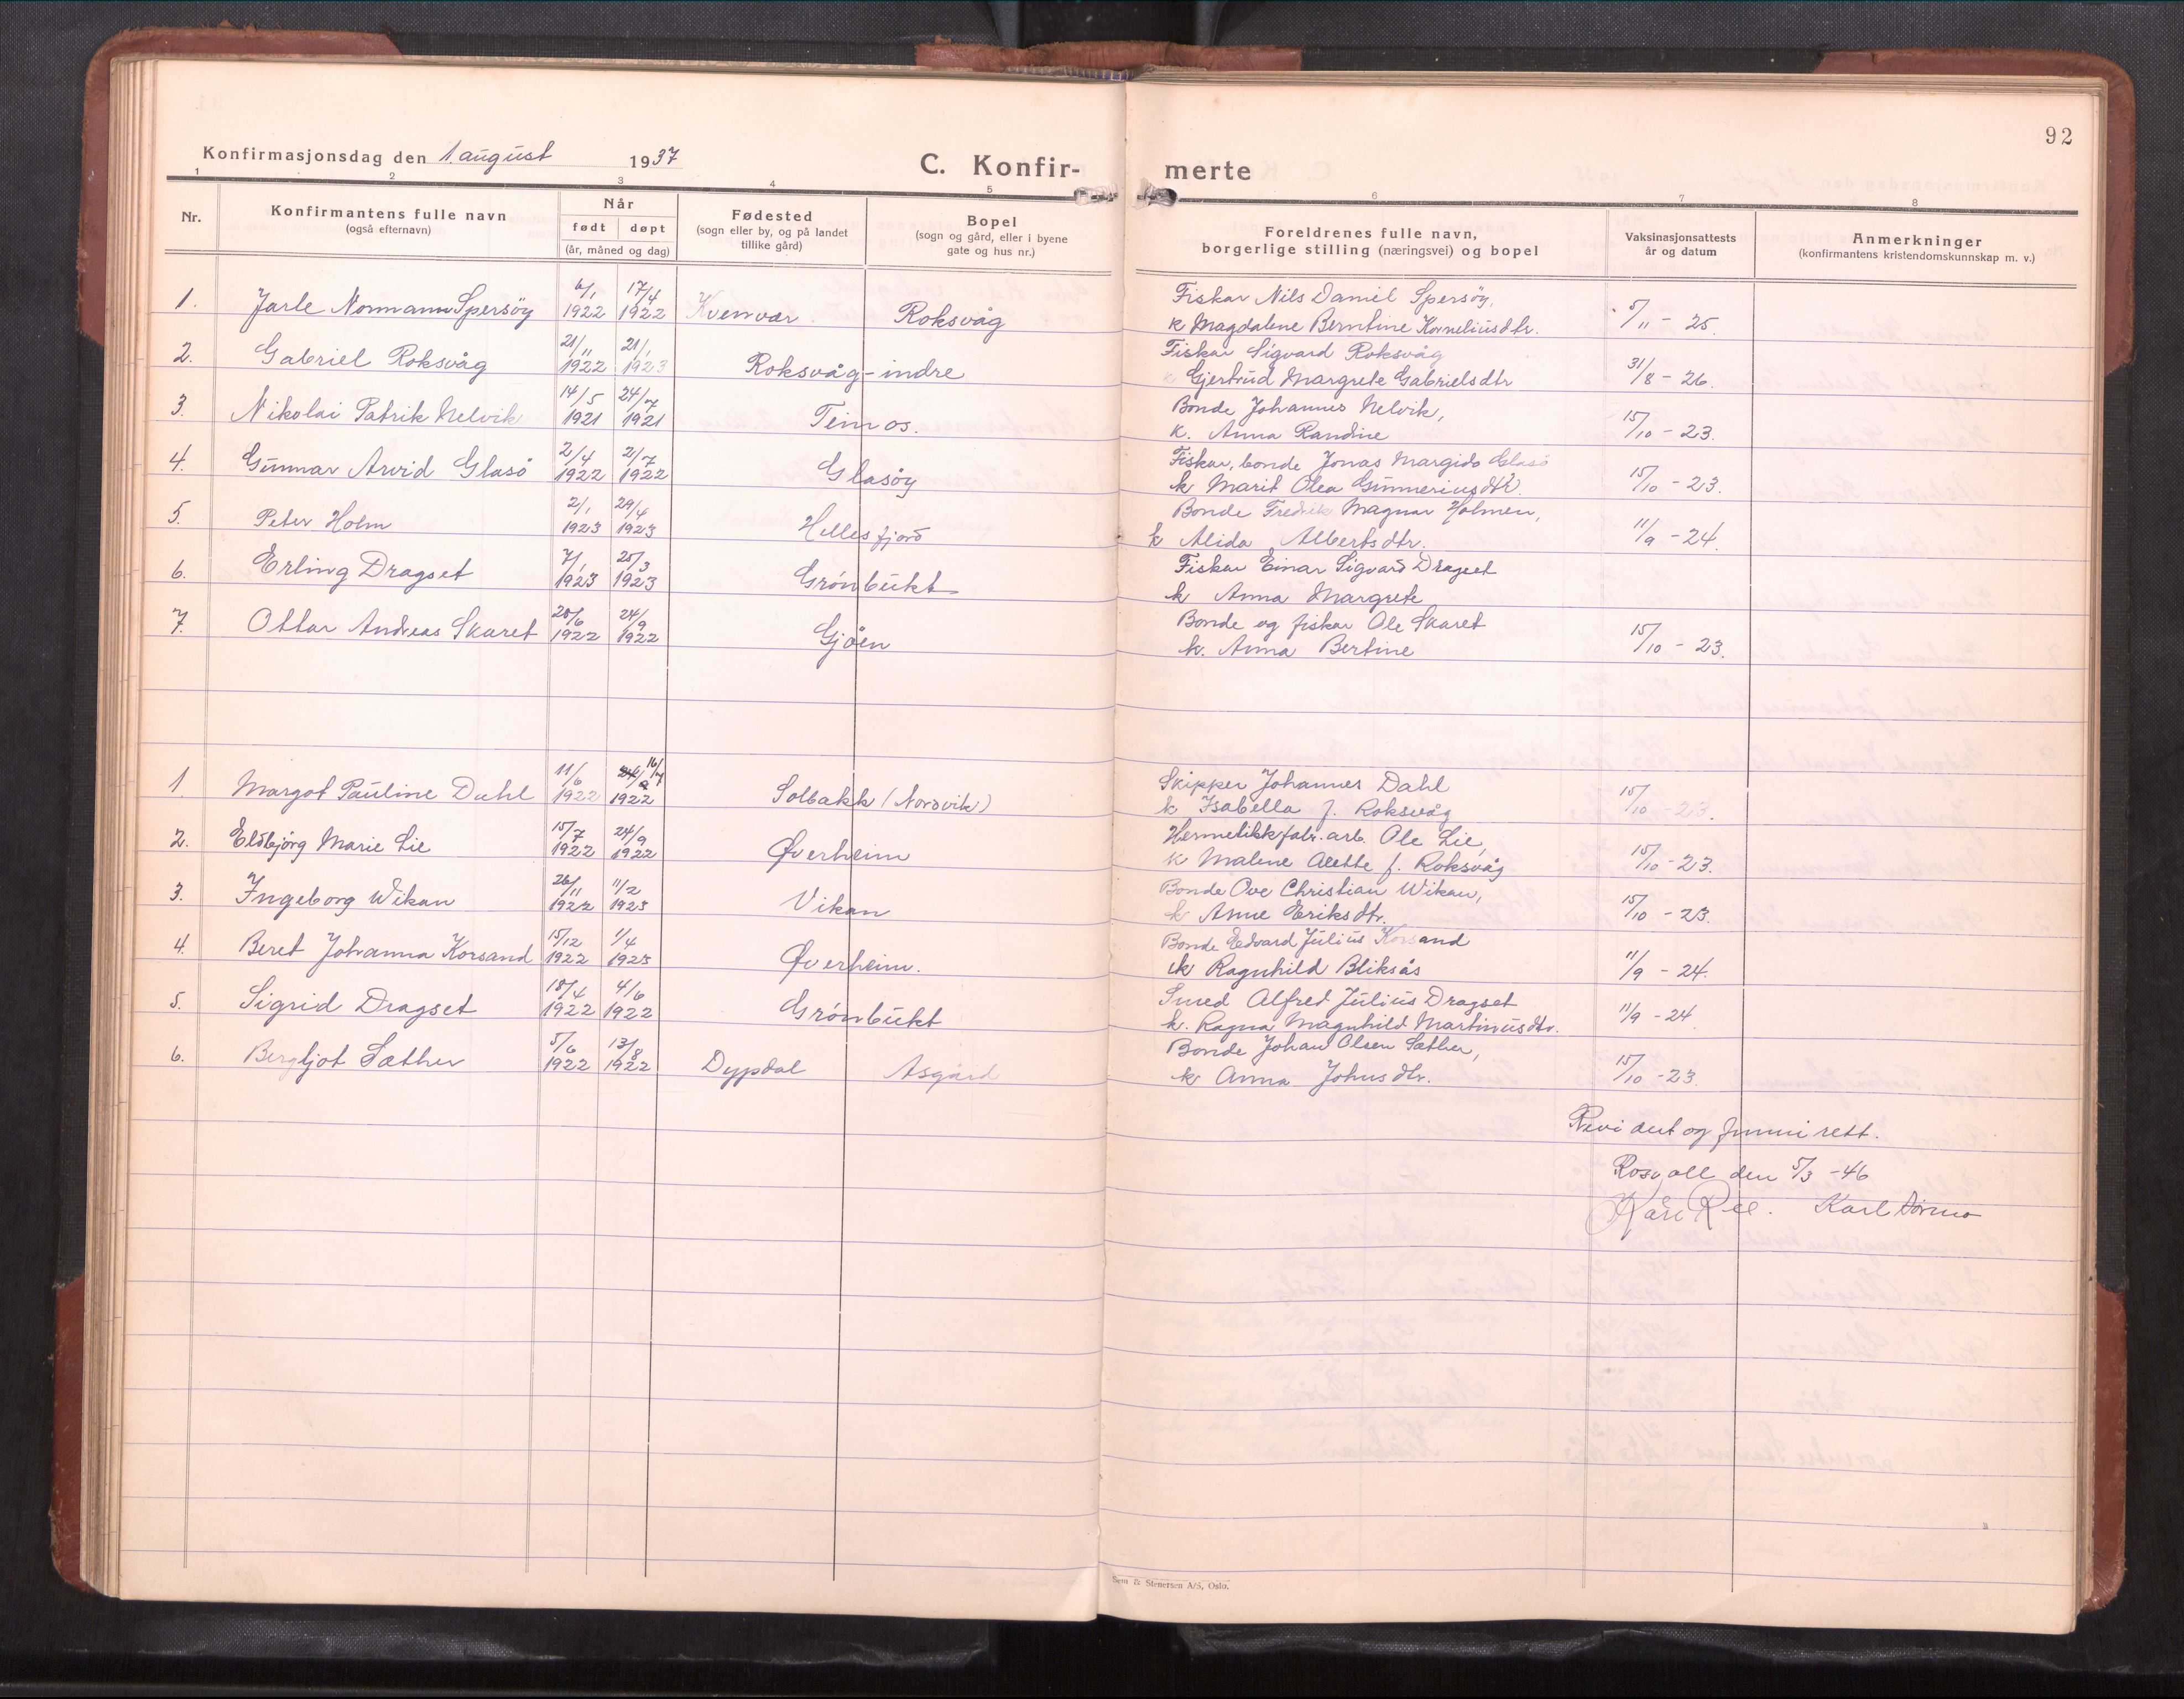 92
Konfirmasjonsdag den 1. august 1937
C. Konfirmerte
1 2 3 4 5 6 7 8
Nr. Konfirmantens fulle navn (også efternavn) Når født døpt (år, måned og dag) Fødested (sogn eller by, og på landet tillike gård) Bopel (sogn og gård, eller i byene gate og hus nr.) Foreldrenes fulle navn, borgerlige stilling (næringsvei) og bopel Vaksinasjonsattests år og datum Anmerkninger (konfirmantens kristendomskunnskap m. v.)
1. Jarle Normann Spersöy 6/1 1922 17/4 1922 Kvenvær Roksvåg Fiskar Nils Daniel Spersöy,
k Magdalene Berntine Korneliusdtr. 5/11 - 25.
2. Gabriel Roksvåg 21/11 1922 21/1 1923 Roksvåg - indre Fiskar Sigvard Roksvåg
k Gjertrud Margrete Gabrielsdtr 31/8 - 26.
3. Nikolai Patrik Nelvik 14/5 1921 24/7 1921 Teinos. Bonde Johannes Nelvik,
k. Anna Randine 15/10 - 23.
4. Gunnar Arvid Glasö 2/4 1922 2/7 1922 Glasöy Fiskar, bonde Jonas Margido Glasö
k Marit Olea Gunneriusdtr. 15/10 - 23.
5. Peter Holm 2/1 1923 29/4 1923 Hellesfjord Bonde Fredrik Magnar Holmen,
k Alida Albertsdtr. 11/9 - 24.
6. Erling Dragset 7/1 1923 25/3 1923 Grönbukt Fiskar Einar Sigvard Dragset
k Anna Margrete
7. Ottar Andreas Skaret 20/6 1922 24/9 1922 Gjöen Bonde og fiskar Ole Skaret
k. Anna Bertine 15/10 - 23.
1. Margot Pauline Dahl 11/6 1922 16/7 1922 Solbakk (Nordvik) Skipper Johannes Dahl
k Isabella f. Roksvåg 15/10 - 23.
2. Eldbjörg Marie Lie 15/7 1922 24/9 1922 Øverheim Hermetikkfabr. arb. Ole Lie,
k Malene Alette f. Roksvåg 15/10 - 23.
3. Ingeborg Wikan 26/11 1922 11/2 1923 Vikan Bonde Ove Christian Wikan,
k Anne Eriksdtr. 15/10 - 23.
4. Beret Johanna Korsand 15/12 1922 1/4 1923 Øverheim. Bonde Edvard Julius Korsand
k Ragnhild Bliksås 11/9 - 24.
5. Sigrid Dragset 18/4 1922 4/6 1922 Grönbukt Smed Alfred Julius Dragset
k. Ragna Magnhild Martinusdtr. 11/9 - 24
6. Bergljot Sæther 5/6 1922 13/8 1922 Dypdal Åsgård Bonde Johan Olsen Sæther,
k Anna Johnsdtr. 15/10 - 23.
Revidert og funni rett.
Rosvoll den 5/3 - 46
Kåre Ree. Karl Sörmo
Sem & Stenersen A/S, Oslo.